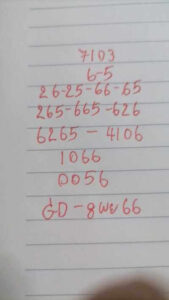 7103
6-5
26-25-66-65
265-665-626
6265 - 4106
1066
0056
GD - 8wv66